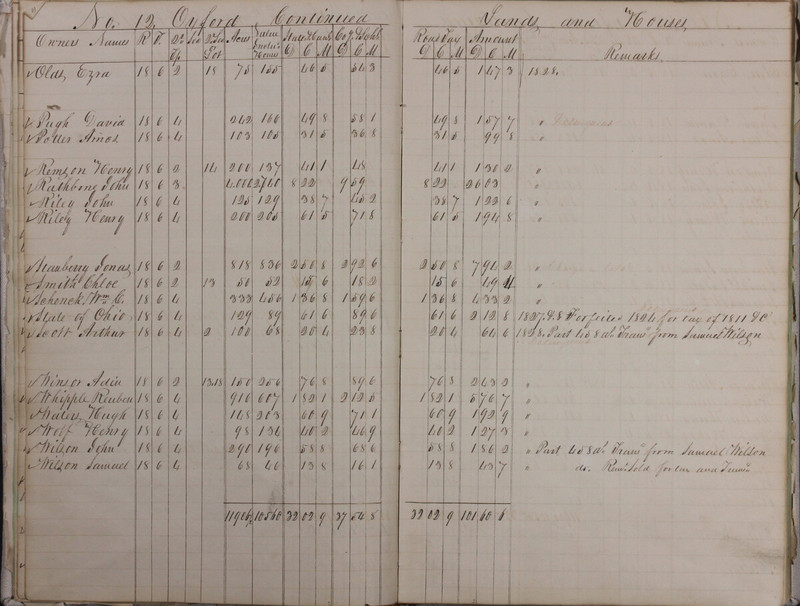 No. 12 Oxford Continued Lands and Houses
Owners Names R T Qr Tp Sec Lot Acres Value State & Canal Co & School Road Tax Amount Remarks
D C M D C M D C M D C M
Olds, Ezra 18 6 2 18 75 155 46 5 54 3 46 5 1 47 3 1828.
Pugh David 18 6 4 242 166 49 8 58 1 49 8 1 57 7 "
Potter Amos 18 6 4 103 105 31 5 36 8 31 5 99 8 "
Remson Henry 18 6 2 14 200 137 41 1 48 41 1 1 30 2 "
Rathbone John 18 6 3 4.000 2740 8 22 9 59 8 22 26 03 "
Riley John 18 6 4 125 129 38 7 45 2 38 7 1 22 6 "
Riley Henry 18 6 4 200 205 61 5 71 8 61 5 1 94 8 "
Stanberry Jonas 18 6 2 818 836 2 50 8 2 92 6 2 50 8 7 94 2 "
Smith Chloe 18 6 2 13 50 52 15 6 18 2 15 6 49 4 "
Schenck, Wm. C. 18 6 4 333 456 1 36 8 1 59 6 1 36 8 4 33 2 "
State of Ohio 18 6 4 129 89 61 6 89 6 61 6 2 12 8 1827 & 8 Forfeited 1824 for tax of 1811 &C
Scott Arthur 18 6 4 2 100 68 20 4 23 8 20 4 64 6 1828. Part 458 as. Trans. from Samuel Wilson
Winsor Adin 18 6 2 13.18 150 256 76 8 89 6 76 8 2 43 2 "
Whipple Reuben 18 6 4 910 607 1 82 1 2 12 5 1 82 1 5 76 7 "
Waters, Hugh 18 6 4 148 203 60 9 71 1 60 9 1 92 9 "
Wolf Henry 18 6 4 98 134 40 2 46 9 40 2 1 27 3 "
Wilson John 18 6 4 290 196 58 8 68 6 58 8 1 86 2 " Part 458 as. Trans. from Samuel Wilson
Wilson Samuel 18 6 4 68 46 13 8 16 1 13 8 43 7 " do. Rem. Sold for tax and Trans.
11906 10560 32 02 9 37 54 8 32 02 9 101 60 6